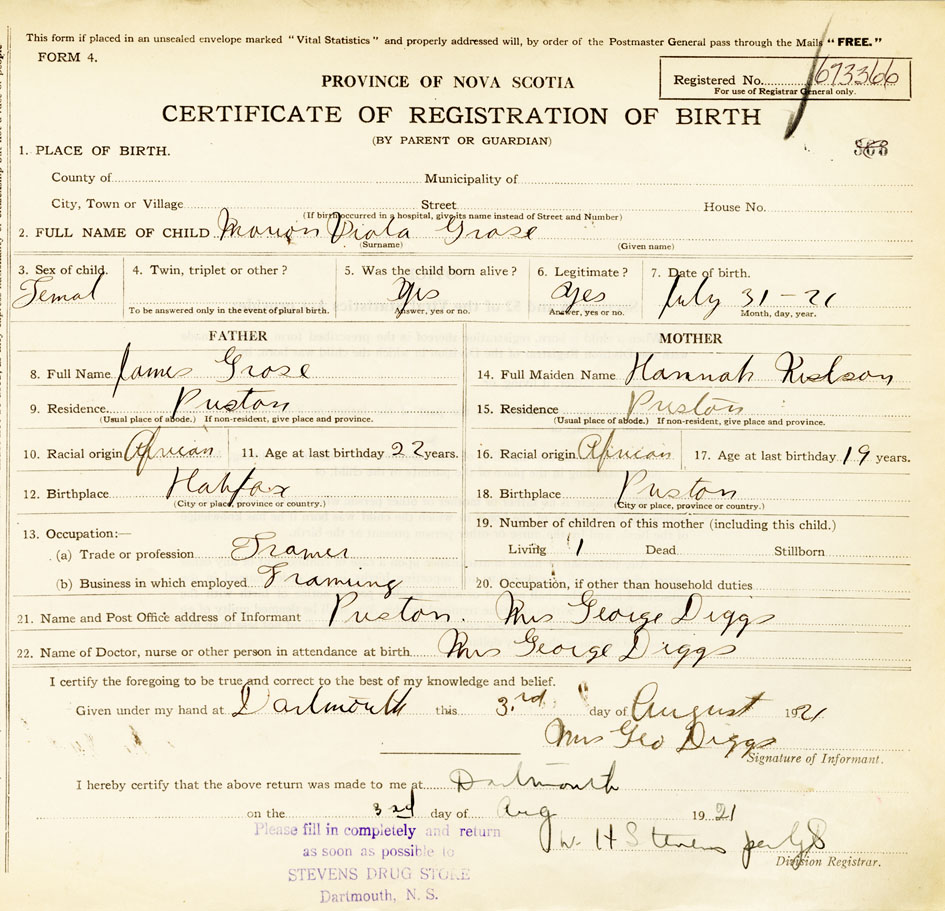 This form if placed in an unsealed envelope marked "Vital Statistics" and properly addressed will, by order of the Postmaster General pass through the Mails "FREE."
FORM 4.
Registered No. 693366
For use of Registrar General only.
PROVINCE OF NOVA SCOTIA
CERTIFICATE OF REGISTRATION OF BIRTH
(BY PARENT OR GUARDIAN)
1. PLACE OF BIRTH.
County of Municipality of
City, Town or Village Street House No.
(If birth occurred in a hospital, give its name instead of Street and Number)
2. FULL NAME OF CHILD Marion Viola Grose
(Surname) (Given name)
3. Sex of child. 4. Twin, triplet or other? 5. Was the child born alive? 6. Legitimate? 7. Date of birth.
Femal Yes Yes July 31-21
To be answered only in the event of plural birth. Answer, yes or no. Answer, yes or no. Month, day, year.
FATHER MOTHER
8. Full Name James Grose 14. Full Maiden Name Hannah
9. Residence Preston 15. Residence Preston
(Usual place of abode.) If non-resident, give place and province. (Usual place of abode.) If non-resident, give place and province.
10. Racial origin African 11. Age at last birthday 22 years. 16. Racial origin African 17. Age at last birthday 19 years.
12. Birthplace Halifax 18. Birthplace Preston
(City or place, province or country.) (City or place, province or country.)
13. Occupation:— 19. Number of children of this mother (including this child.)
(a) Trade or profession Framer Living 1 Dead Stillborn
(b) Business in which employed Framing 20. Occupation, if other than household duties
21. Name and Post Office address of Informant Preston. Mrs George Diggs
22. Name of Doctor, nurse or other person in attendance at birth Mrs George Diggs
I certify the foregoing to be true and correct to the best of my knowledge and belief.
Given under my hand at Dartmouth this 3rd day of August 1921
Mrs Geo Diggs
Signature of Informant.
I hereby certify that the above return was made to me at Dartmouth
on the 3rd day of Aug 1921
W. H Stevens per GB
Division Registrar.
Please fill in completely and return
as soon as possible to
STEVENS DRUG STORE
Dartmouth, N. S.